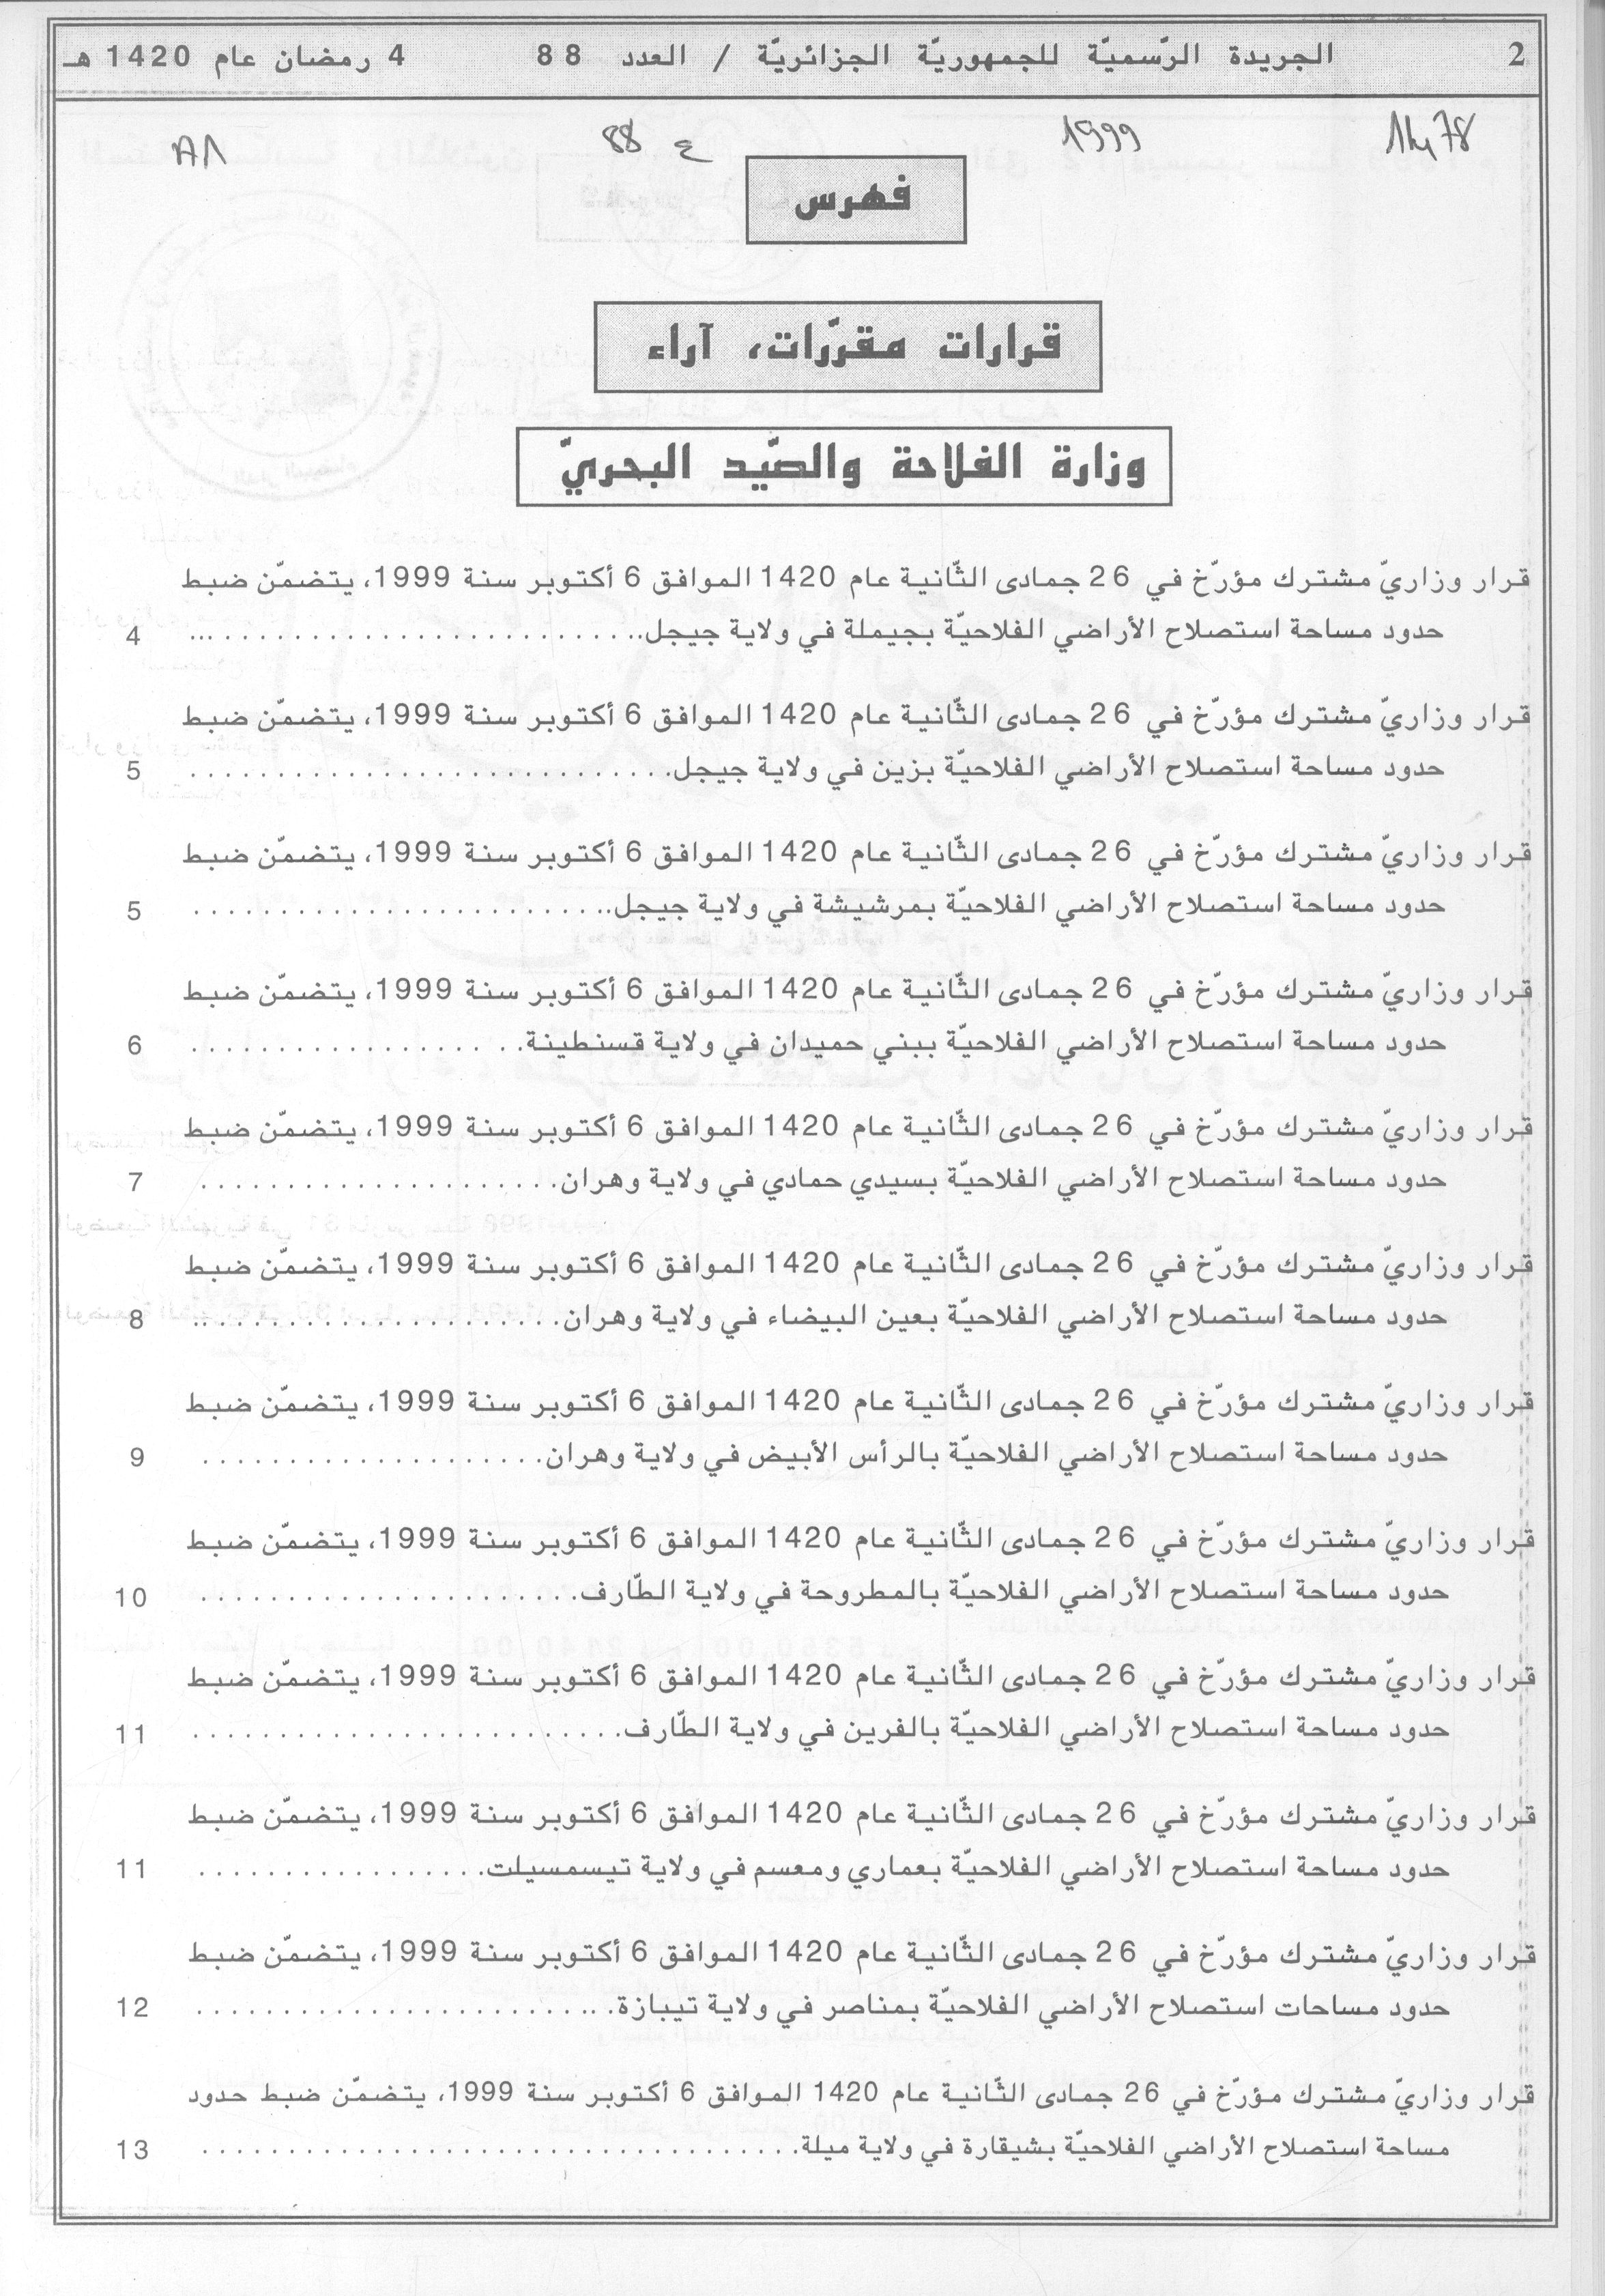 2 الجريدة الرّسميّة للجمهوريّة الجزائريّة / العدد 88 4 رمضان عام 1420 هـ
1999 ع 88
فهرس
قرارات مقرّرات، آراء
وزارة الفلاحة والصّيد البحريّ
قرار وزاريّ مشترك مؤرّخ في 26 جمادى الثّانية عام 1420 الموافق 6 أكتوبر سنة 1999، يتضمّن ضبط
حدود مساحة استصلاح الأراضي الفلاحيّة بجيملة في ولاية جيجل............................... 4
قرار وزاريّ مشترك مؤرّخ في 26 جمادى الثّانية عام 1420 الموافق 6 أكتوبر سنة 1999، يتضمّن ضبط
حدود مساحة استصلاح الأراضي الفلاحيّة بزين في ولاية جيجل............................ 5
قرار وزاريّ مشترك مؤرّخ في 26 جمادى الثّانية عام 1420 الموافق 6 أكتوبر سنة 1999، يتضمّن ضبط
حدود مساحة استصلاح الأراضي الفلاحيّة بمرشيشة في ولاية جيجل......................... 5
قرار وزاريّ مشترك مؤرّخ في 26 جمادى الثّانية عام 1420 الموافق 6 أكتوبر سنة 1999، يتضمّن ضبط
حدود مساحة استصلاح الأراضي الفلاحيّة ببني حميدان في ولاية قسنطينة.................... 6
قرار وزاريّ مشترك مؤرّخ في 26 جمادى الثّانية عام 1420 الموافق 6 أكتوبر سنة 1999، يتضمّن ضبط
حدود مساحة استصلاح الأراضي الفلاحيّة بسيدي حمادي في ولاية وهران..................... 7
قرار وزاريّ مشترك مؤرّخ في 26 جمادى الثّانية عام 1420 الموافق 6 أكتوبر سنة 1999، يتضمّن ضبط
حدود مساحة استصلاح الأراضي الفلاحيّة بعين البيضاء في ولاية وهران...................... 8
قرار وزاريّ مشترك مؤرّخ في 26 جمادى الثّانية عام 1420 الموافق 6 أكتوبر سنة 1999، يتضمّن ضبط
حدود مساحة استصلاح الأراضي الفلاحيّة بالرأس الأبيض في ولاية وهران.................... 9
قرار وزاريّ مشترك مؤرّخ في 26 جمادى الثّانية عام 1420 الموافق 6 أكتوبر سنة 1999، يتضمّن ضبط
حدود مساحة استصلاح الأراضي الفلاحيّة بالمطروحة في ولاية الطّارف...................... 10
قرار وزاريّ مشترك مؤرّخ في 26 جمادى الثّانية عام 1420 الموافق 6 أكتوبر سنة 1999، يتضمّن ضبط
حدود مساحة استصلاح الأراضي الفلاحيّة بالفرين في ولاية الطّارف......................... 11
قرار وزاريّ مشترك مؤرّخ في 26 جمادى الثّانية عام 1420 الموافق 6 أكتوبر سنة 1999، يتضمّن ضبط
حدود مساحة استصلاح الأراضي الفلاحيّة بعماري ومعسم في ولاية تيسمسيلت................. 11
قرار وزاريّ مشترك مؤرّخ في 26 جمادى الثّانية عام 1420 الموافق 6 أكتوبر سنة 1999، يتضمّن ضبط
حدود مساحات استصلاح الأراضي الفلاحيّة بمناصر في ولاية تيبازة......................... 12
قرار وزاريّ مشترك مؤرّخ في 26 جمادى الثّانية عام 1420 الموافق 6 أكتوبر سنة 1999، يتضمّن ضبط حدود
مساحة استصلاح الأراضي الفلاحيّة بشيقارة في ولاية ميلة................................... 13